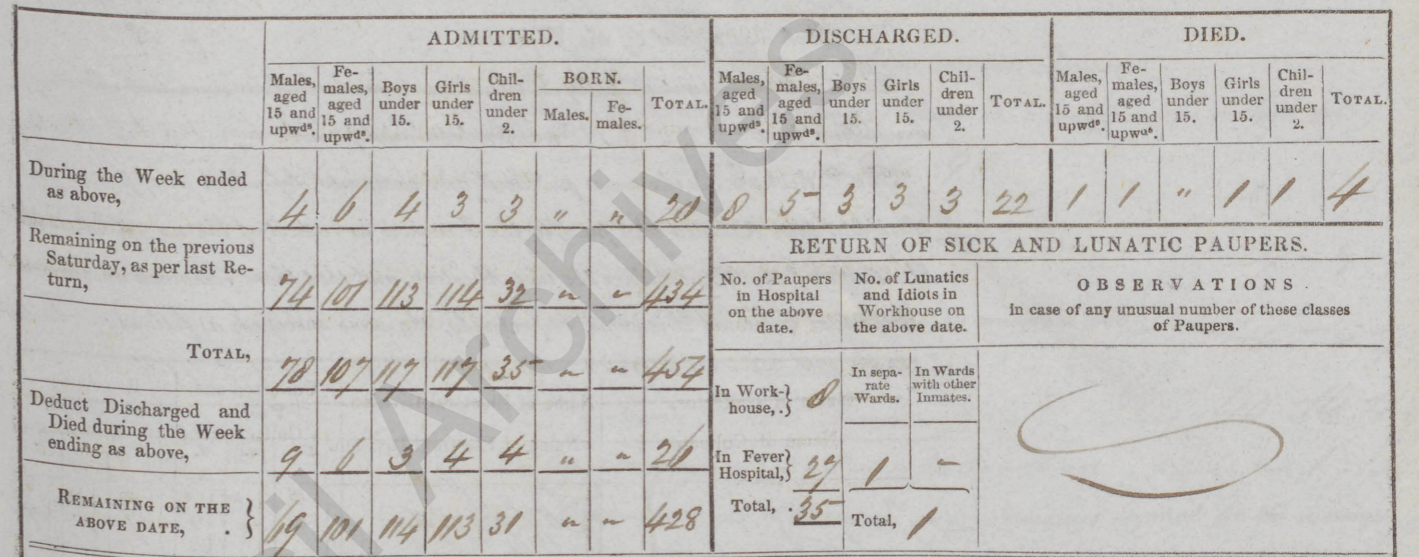 ADMITTED. DISCHARGED. DIED.
Males, aged 15 and upwds. Fe-males, aged 15 and upwds. Boys under 15. Girls under 15. Chil-dren under 2. BORN. Males. Fe-males. TOTAL. Males, aged 15 and upwds. Fe-males, aged 15 and upwds. Boys under 15. Girls under 15. Chil-dren under 2. TOTAL. Males, aged 15 and upwds. Fe-males, aged 15 and upwds. Boys under 15. Girls under 15. Chil-dren under 2. TOTAL.
During the Week ended
as above, 4 6 4 3 3 " " 20 8 5 3 3 3 22 1 1 " 1 1 4
Remaining on the previous
Saturday, as per last Re-
turn, 74 101 113 114 32 " " 434
TOTAL, 78 107 117 117 35 " " 454
Deduct Discharged and
Died during the Week
ending as above, 9 6 3 4 4 " " 26
REMAINING ON THE
ABOVE DATE, . 69 101 114 113 31 " " 428
RETURN OF SICK AND LUNATIC PAUPERS.
No. of Paupers
in Hospital
on the above
date.
No. of Lunatics
and Idiots in
Workhouse on
the above date.
OBSERVATIONS
in case of any unusual number of these classes
of Paupers.
In Work-
house, . 8
In Fever
Hospital, 27
Total, . 35
In sepa-
rate
Wards.
In Wards
with other
Inmates.
1 "
Total, 1
il Archives